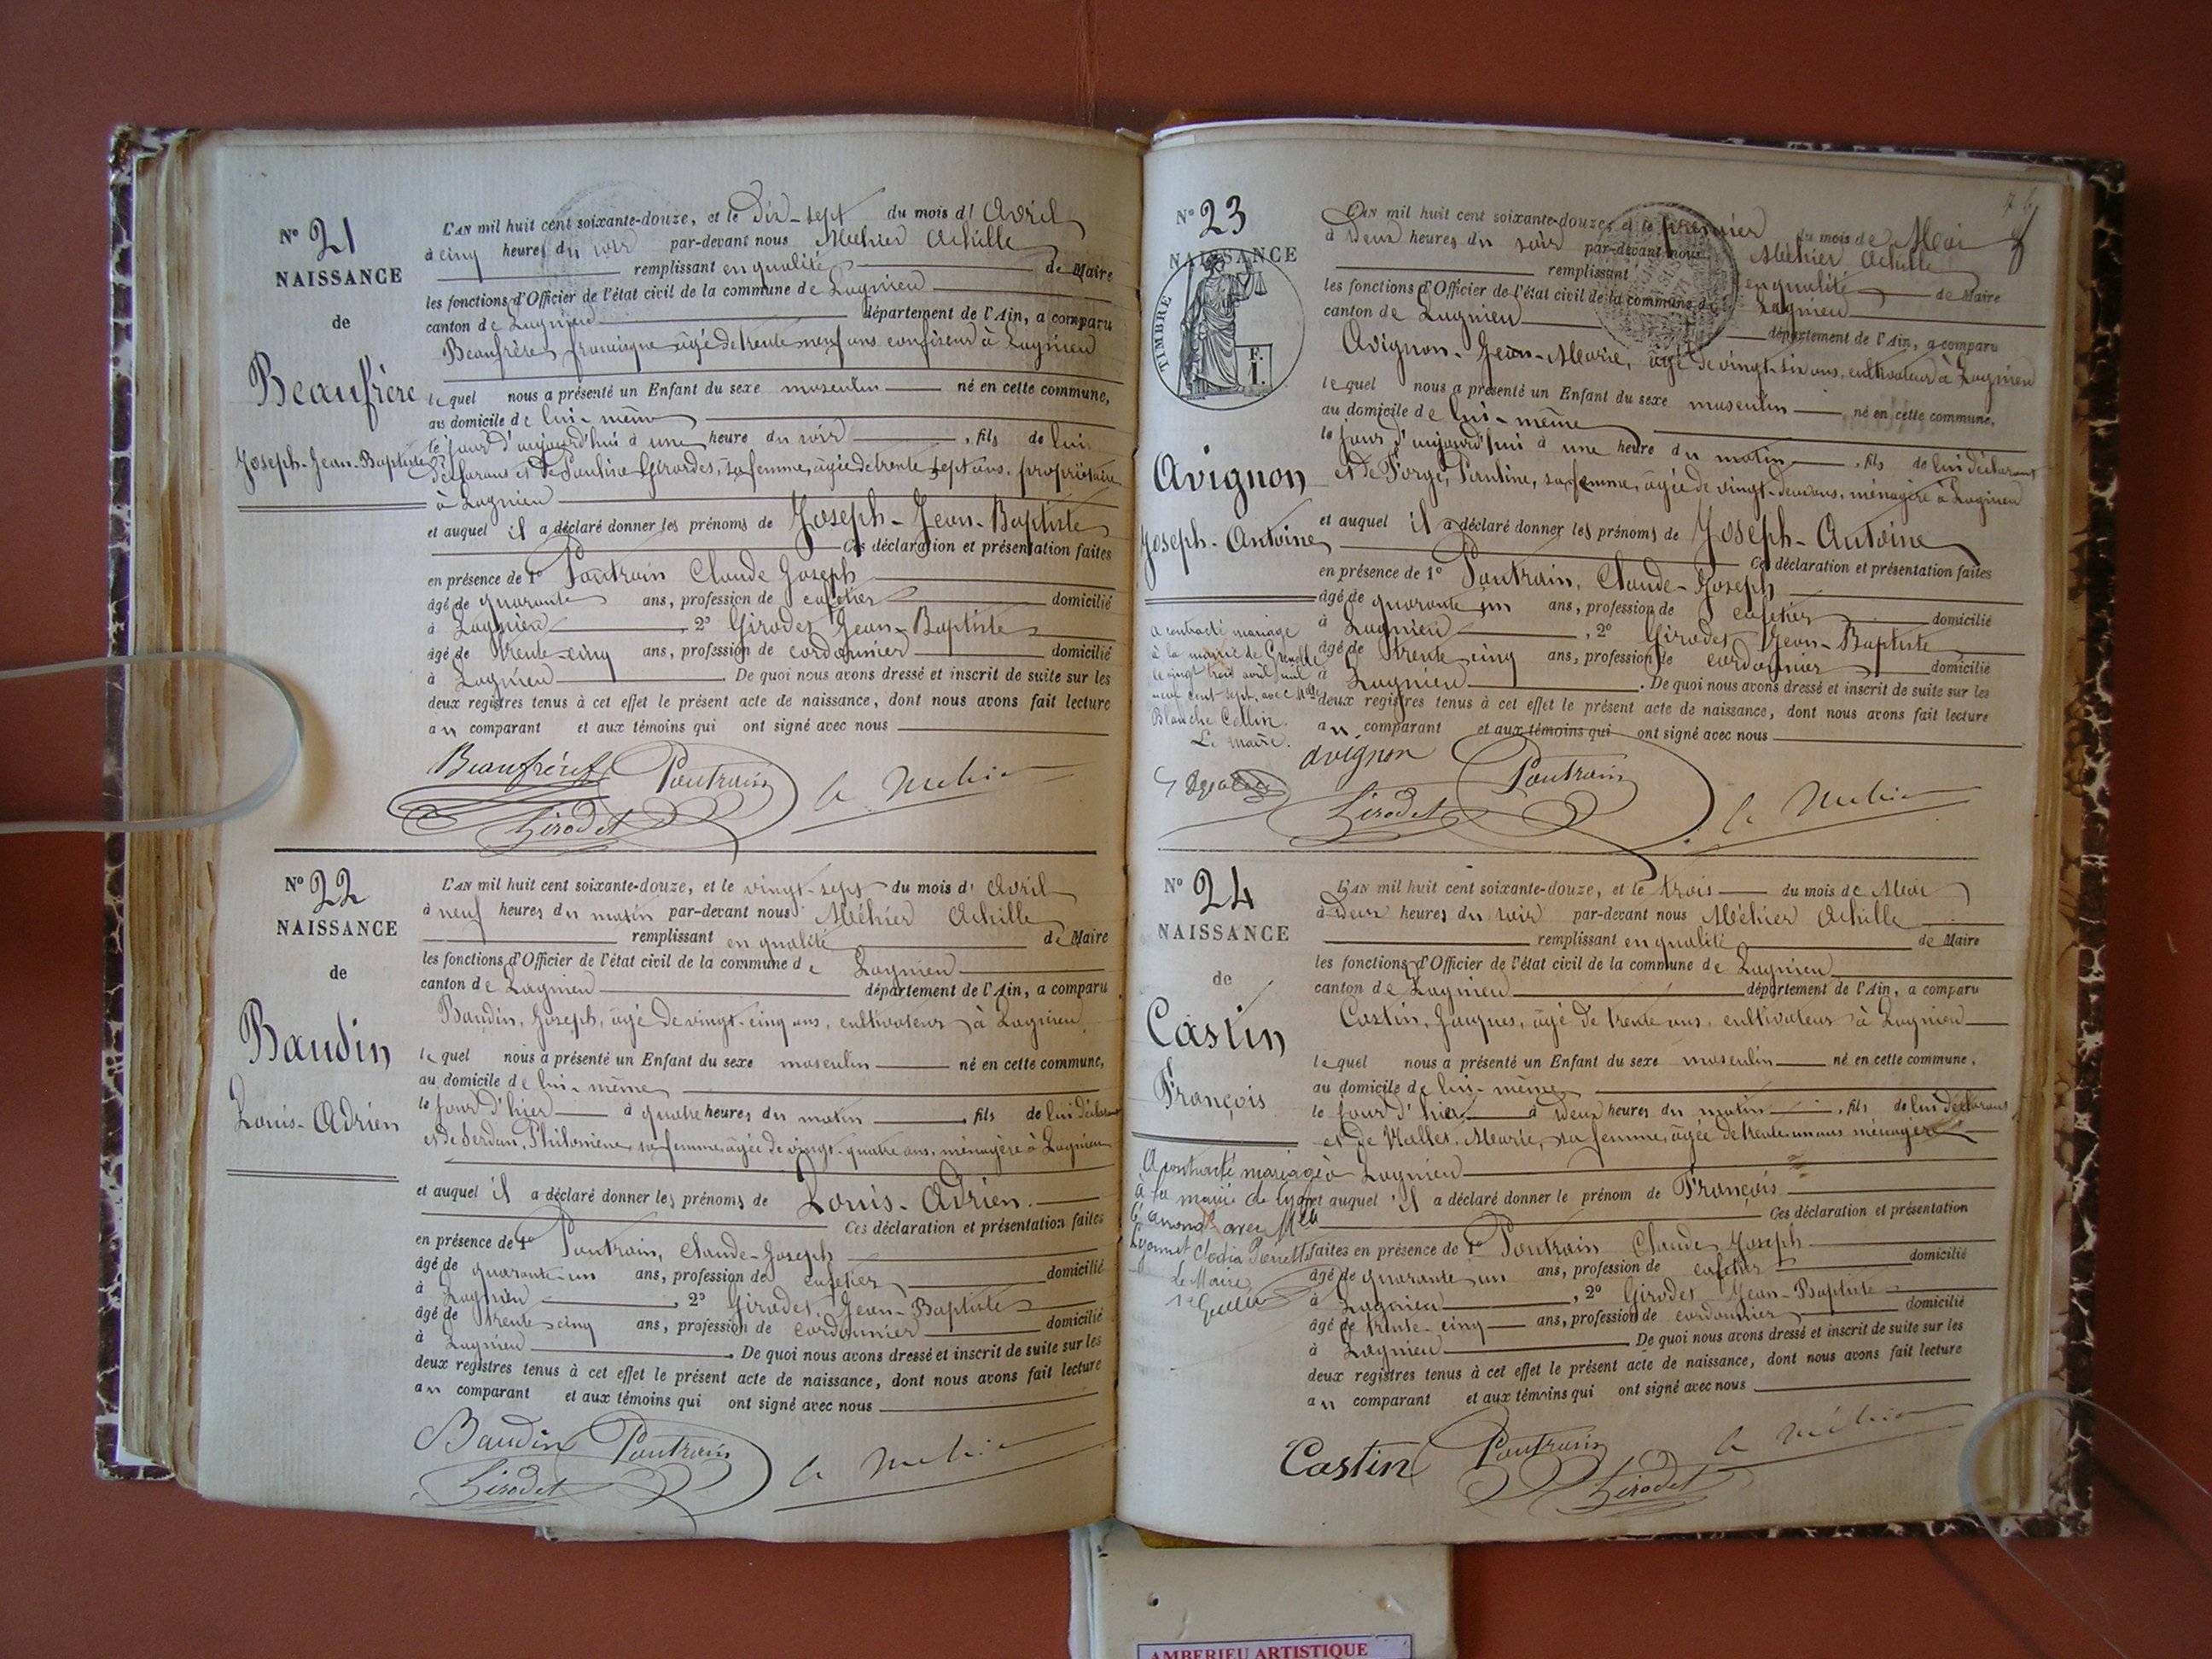 N° 21
NAISSANCE
de
Beaufrère
Joseph-Jean-Baptiste
L'AN mil huit cent soixante-douze, et le dix-sept du mois d'Avril
à cinq heures du soir par-devant nous Méhier Achille
remplissant en qualité de Maire
les fonctions d'Officier de l'état civil de la commune de Lagnieu
canton de Lagnieu département de l'Ain, a comparu
Beaufrère, françisque âgé de trente neuf ans confiseur à Lagnieu
lequel nous a présenté un Enfant du sexe masculin né en cette commune,
au domicile de lui-même
le jour d'aujourd'hui à une heure du soir, fils de lui
déclarant et de Pauline Girardes, sa femme, âgée de trente sept ans, propriétaire
à Lagnieu
et auquel il a déclaré donner les prénoms de Joseph-Jean-Baptiste
Ces déclaration et présentation faites
en présence de 1° Poutrain Claude Joseph
âgé de quarante ans, profession de cafetier domicilié
à Lagnieu, 2° Girodet Jean-Baptiste
âgé de trente-cinq ans, profession de cordonnier domicilié
à Lagnieu. De quoi nous avons dressé et inscrit de suite sur les
deux registres tenus à cet effet le présent acte de naissance, dont nous avons fait lecture
au comparant et aux témoins qui ont signé avec nous
Beaufrère Poutrain A Méhier
Girodet
N° 22
NAISSANCE
de
Baudin
Louis-Adrien
L'AN mil huit cent soixante-douze, et le vingt-sept du mois d'Avril
à neuf heures du matin par-devant nous Méhier Achille
remplissant en qualité de Maire
les fonctions d'Officier de l'état civil de la commune de Lagnieu
canton de Lagnieu département de l'Ain, a comparu
Baudin, Joseph, âgé de vingt-cinq ans, cultivateur à Lagnieu
lequel nous a présenté un Enfant du sexe masculin né en cette commune,
au domicile de lui-même
le jour d'hier à quatre heures du matin, fils de lui déclarant
et de Serdan, Philomène sa femme, âgée de vingt-quatre ans, ménagère à Lagnieu
et auquel il a déclaré donner les prénoms de Louis-Adrien.
Ces déclaration et présentation faites
en présence de 1° Poutrain, Claude-Joseph
âgé de quarante-un ans, profession de cafetier domicilié
à Lagnieu, 2° Girodet, Jean-Baptiste
âgé de trente-cinq ans, profession de cordonnier domicilié
à Lagnieu. De quoi nous avons dressé et inscrit de suite sur les
deux registres tenus à cet effet le présent acte de naissance, dont nous avons fait lecture
au comparant et aux témoins qui ont signé avec nous
Baudin Poutrain A Méhier
Girodet
N° 23
NAISSANCE
TIMBRE
F.
I.
Avignon
Joseph-Antoine
a contracté mariage
à la mairie de Grenoble
le vingt trois avril mil
neuf cent sept, avec Mlle
Blanche Collin.
Le Maire.
L'AN mil huit cent soixante-douze, et le premier du mois de Mai
à deux heures du soir par-devant nous Méhier Achille
remplissant en qualité de Maire
les fonctions d'Officier de l'état civil de la commune de Lagnieu
canton de Lagnieu département de l'Ain, a comparu
Avignon-Jean-Marie, âgé de vingt-six ans, cultivateur à Lagnieu
lequel nous a présenté un Enfant du sexe masculin né en cette commune,
au domicile de lui-même
le jour d'aujourd'hui à une heure du matin, fils de lui déclarant
et de Forge, Pauline, sa femme, âgée de vingt-deux ans, ménagère à Lagnieu
et auquel il a déclaré donner les prénoms de Joseph-Antoine
Ces déclaration et présentation faites
en présence de 1° Poutrain, Claude-Joseph
âgé de quarante un ans, profession de cafetier domicilié
à Lagnieu, 2° Girodet Jean-Baptiste
âgé de trente cinq ans, profession de cordonnier domicilié
à Lagnieu. De quoi nous avons dressé et inscrit de suite sur les
deux registres tenus à cet effet le présent acte de naissance, dont nous avons fait lecture
au comparant et aux témoins qui ont signé avec nous
avignon Poutrain A Méhier
Girodet
N° 24
NAISSANCE
de
Castin
François
A contracté mariage
à la mairie de Lyon
avec Mlle
Lyonnet Claudia Pierrette
Le Maire
L'AN mil huit cent soixante-douze, et le trois du mois de Mai
à deux heures du soir par-devant nous Méhier Achille
remplissant en qualité de Maire
les fonctions d'Officier de l'état civil de la commune de Lagnieu
canton de Lagnieu département de l'Ain, a comparu
Castin, Jacques, âgé de trente ans, cultivateur à Lagnieu
lequel nous a présenté un Enfant du sexe masculin né en cette commune,
au domicile de lui-même
le jour d'hier à deux heures du matin, fils de lui déclarant
et de Marie, sa femme, âgée de trente-un ans ménagère
à Lagnieu
et auquel il a déclaré donner le prénom de François
Ces déclaration et présentation
faites en présence de 1° Poutrain Claude Joseph
âgé de quarante un ans, profession de cafetier domicilié
à Lagnieu, 2° Girodet Jean-Baptiste
âgé de trente-cinq ans, profession de cordonnier domicilié
à Lagnieu. De quoi nous avons dressé et inscrit de suite sur les
deux registres tenus à cet effet le présent acte de naissance, dont nous avons fait lecture
au comparant et aux témoins qui ont signé avec nous
Castin Poutrain A Méhier
Girodet
AMBERIEU ARTISTIQUE